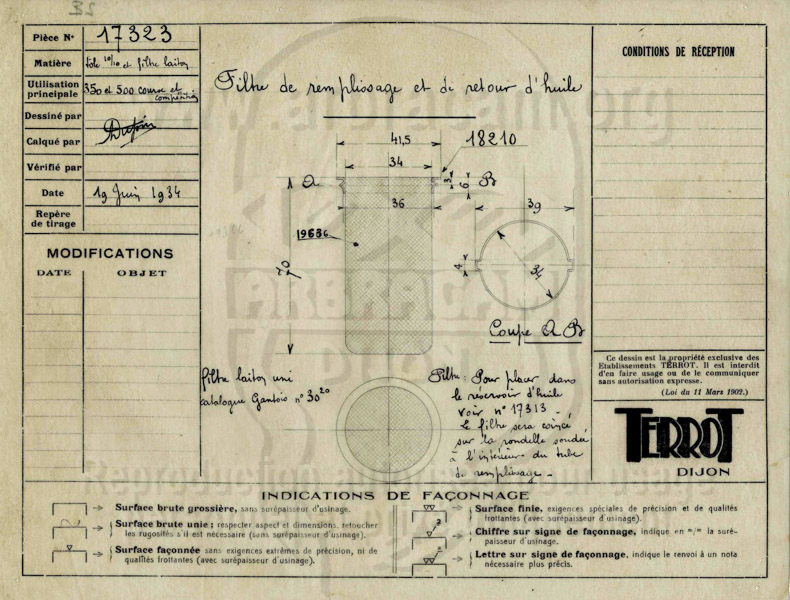 Pièce N° 17323
Matière tôle 10/10 et filtre laiton
Utilisation
principale 350 et 500 course et
compétition
Dessiné par
Calqué par
Vérifié par
Date 19 Juin 1934
Repère
de tirage
MODIFICATIONS
DATE OBJET
Filtre de remplissage et de retour d'huile
41,5
18210
34
A
3
6
B
36
39
19636
70
4
34
Coupe A B
filtre laiton uni
catalogue Gantois n° 30 20
Filtre: Pour placer dans
le réservoir d'huile
voir n° 17313 -
Le filtre sera coincé
sur la rondelle soudée
à l'intérieur du tube
de remplissage -
CONDITIONS DE RÉCEPTION
Ce dessin est la propriété exclusive des
Etablissements TERROT. Il est interdit
d'en faire usage ou de le communiquer
sans autorisation expresse.
(Loi du 11 Mars 1902.)
TERROT
DIJON
INDICATIONS DE FAÇONNAGE
Surface brute grossière, sans surépaisseur d'usinage.
Surface brute unie; respecter aspect et dimensions, retoucher
les rugosités s'il est nécessaire (sans surépaisseur d'usinage).
Surface façonnée sans exigences extrêmes de précision, ni de
qualités frottantes (avec surépaisseur d'usinage).
Surface finie, exigences spéciales de précision et de qualités
frottantes (avec surépaisseur d'usinage).
Chiffre sur signe de façonnage, indique en m/m la suré-
paisseur d'usinage.
Lettre sur signe de façonnage, indique le renvoi à un nota
nécessaire plus précis.
ARBRACAM